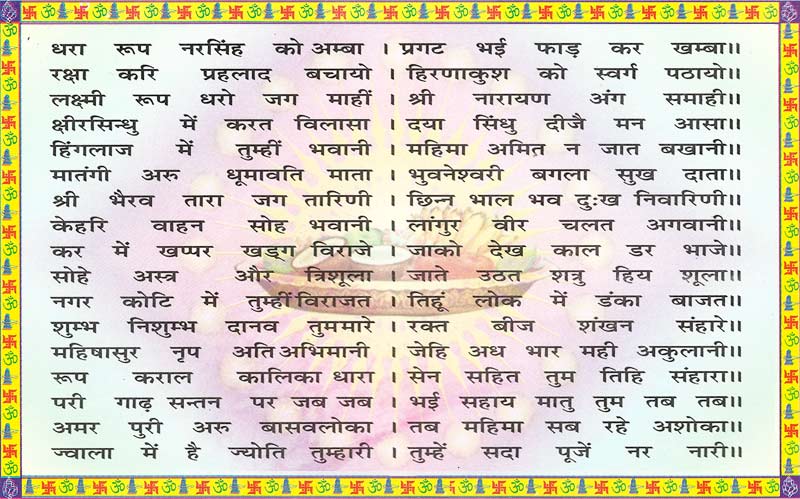 धरा रूप नरसिंह को अम्बा । प्रगट भई फाड़ कर खम्बा।।
रक्षा करि प्रहलाद बचायो । हिरणाकुश को स्वर्ग पठायो।।
लक्ष्मी रूप धरो जग माहीं । श्री नारायण अंग समाही।।
क्षीरसिन्धु में करत विलासा । दया सिंधु दीजै मन आसा।।
हिंगलाज में तुम्हीं भवानी । महिमा अमित न जात बखानी।।
मातंगी अरु धूमावति माता । भुवनेश्वरी बगला सुख दाता।।
श्री भैरव तारा जग तारिणी । छिन्न भाल भव दुःख निवारिणी।।
केहरि वाहन सोह भवानी । लांगुर वीर चलत अगवानी।।
कर में खप्पर खड्ग विराजे । जाको देख काल डर भाजे।।
सोहे अस्त्र और त्रिशूला । जाते उठत शत्रु हिय शूला।।
नगर कोटि में तुम्हीं विराजत । तिहूं लोक में डंका बाजत।।
शुम्भ निशुम्भ दानव तुममारे । रक्त बीज शंखन संहारे।।
महिषासुर नृप अति अभिमानी । जेहि अध भार मही अकुलानी।।
रूप कराल कालिका धारा । सेन सहित तुम तिहि संहारा।।
परी गाढ़ सन्तन पर जब जब । भई सहाय मातु तुम तब तब।।
अमर पुरी अरु बासवलोका । तब महिमा सब रहे अशोका।।
ज्वाला में है ज्योति तुम्हारी । तुम्हें सदा पूजें नर नारी।।